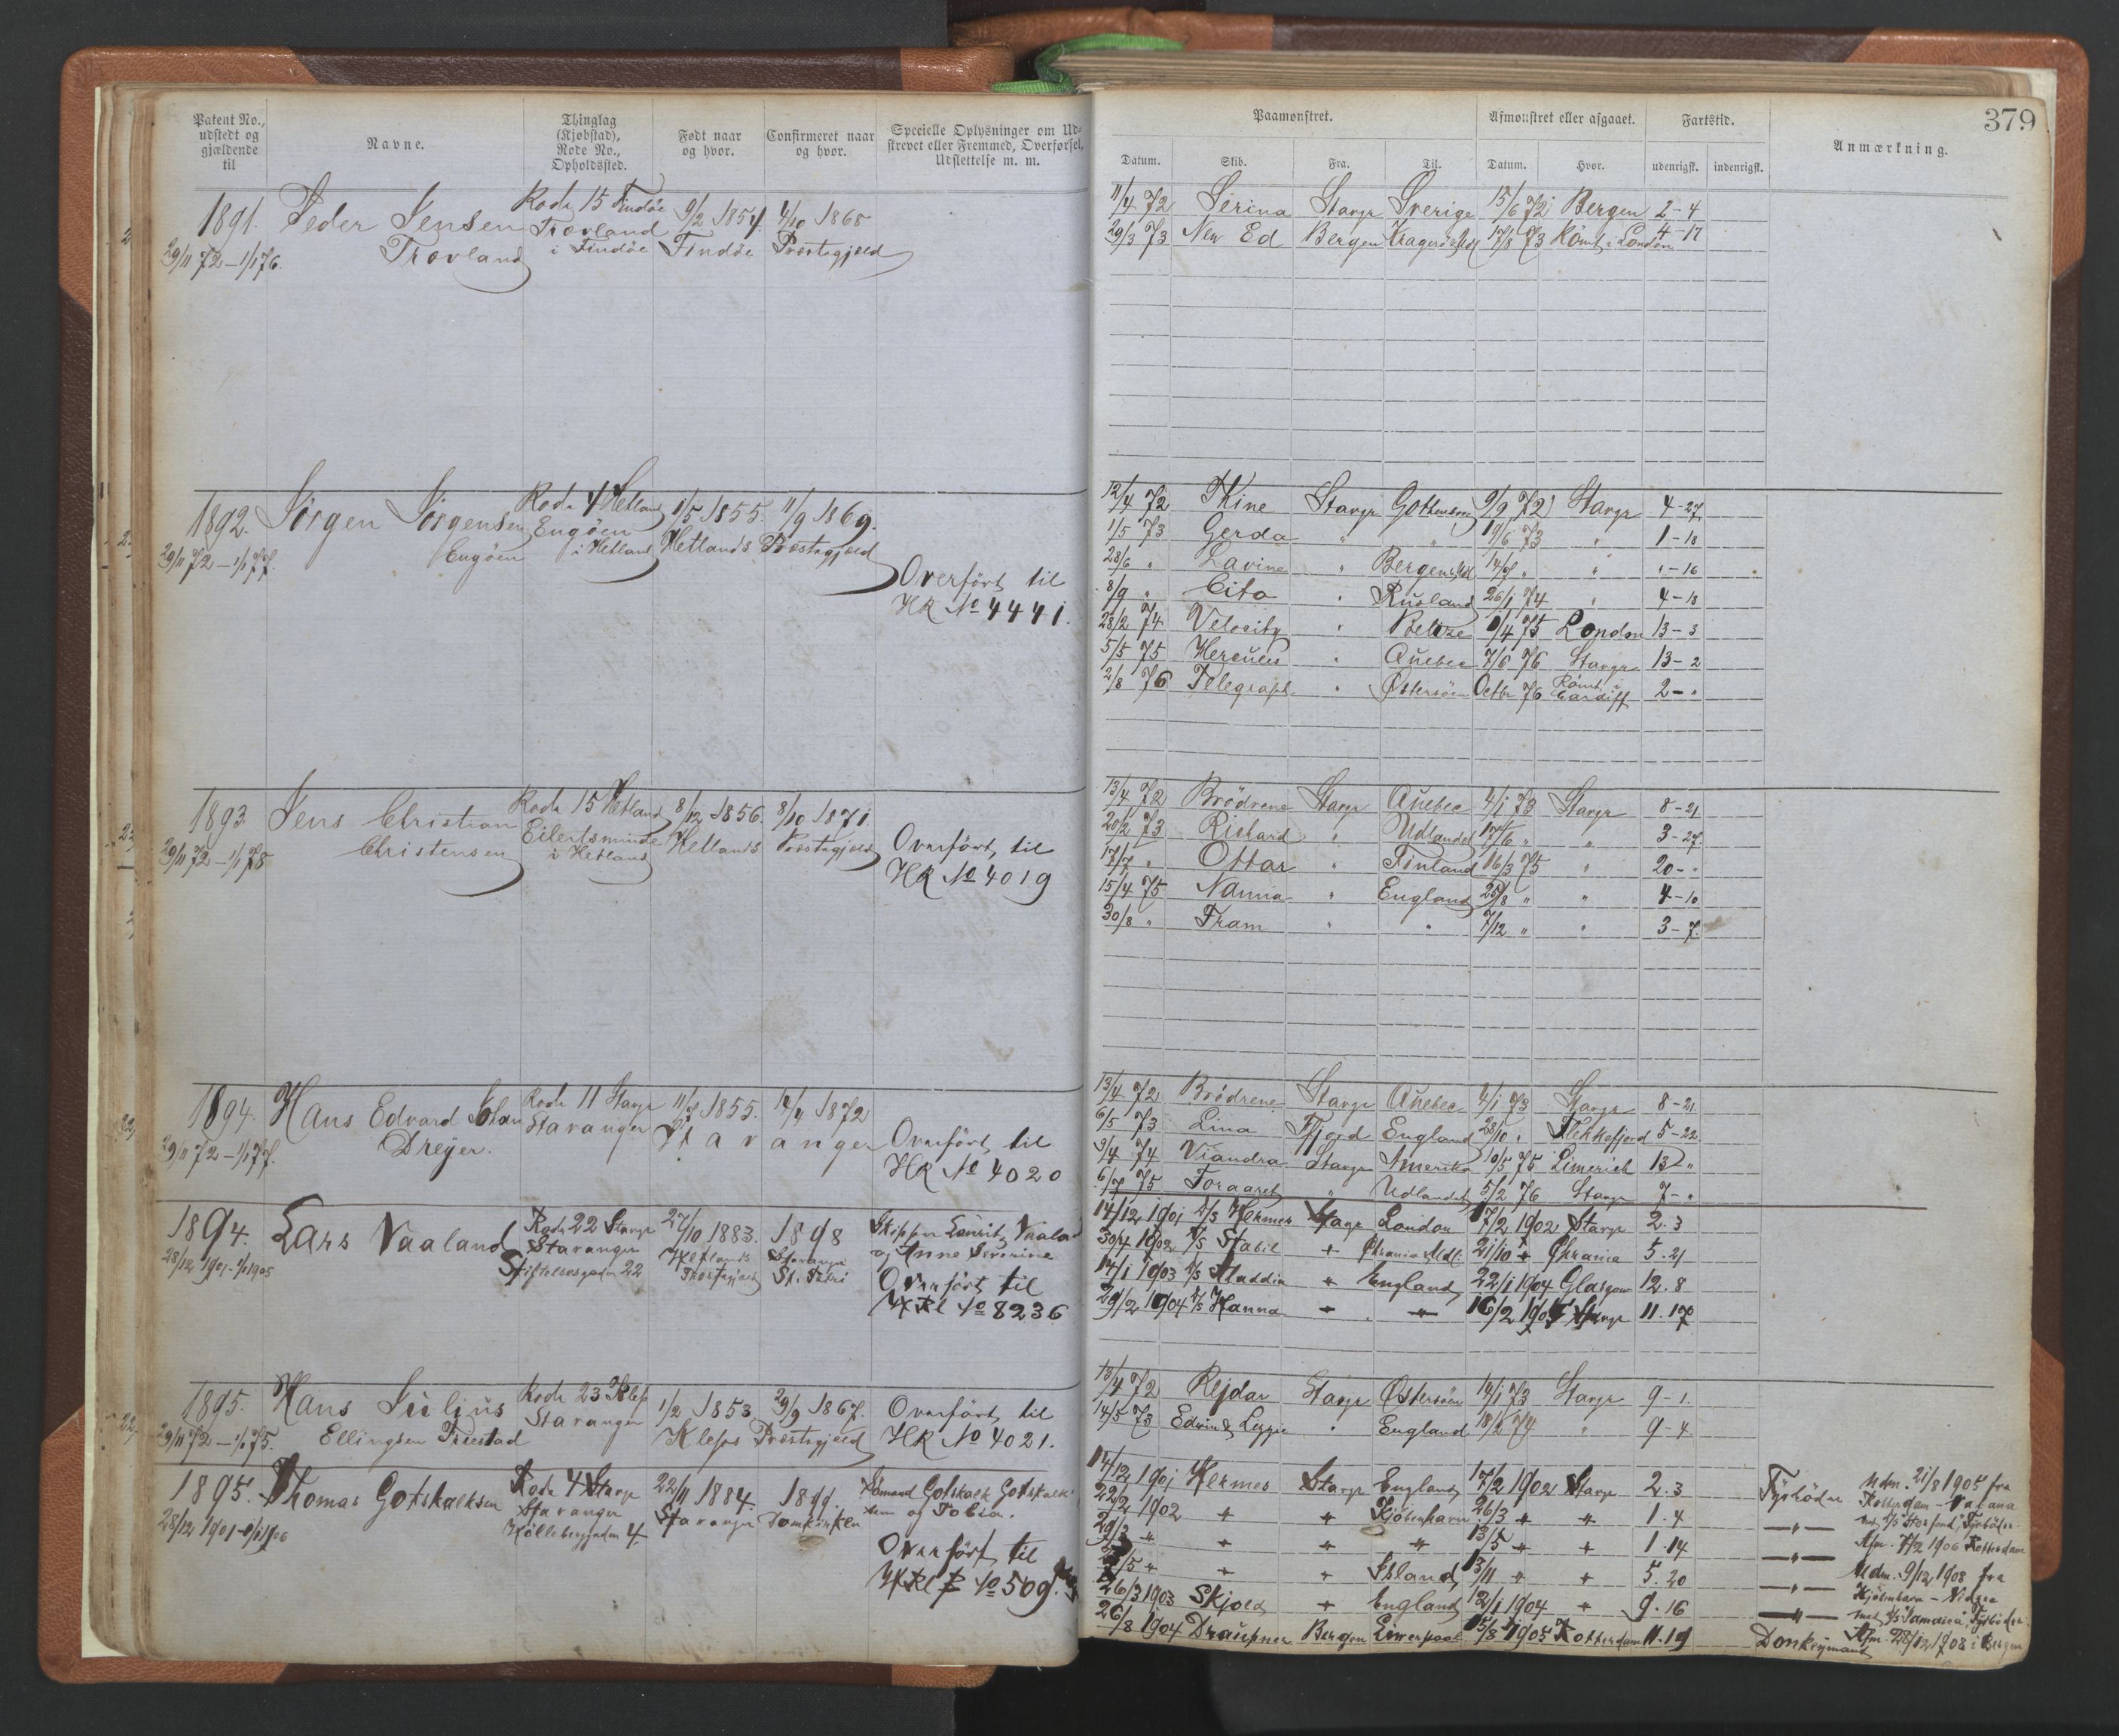 Patent No., udstedt og gjældende til
Navne.
Thinglag (Kjøbstad), Rode No., Opholdssted.
Født naar og hvor.
Confirmeret naar og hvor.
Specielle Oplysninger om Udstrevet eller Fremmed, Overførsel, Udslettelse m. m.
Paamønstret.
Afmønstret eller afgaaet.
Fartstid.
Anmærkning.
379
Datum. Skib. Fra. Til. Datum. Hvor. udenrigsk. indenrigsk.
1891. Peder Jensen Rode 15 Findöe 9/2 1854. 4/10 1868
29/11 72 – 1/1 76. Trovland Trovland i Findöe Findöe Præstegjeld
11/4 72 Serina Stavgr Sverige 15/6 72 Bergen 2-4
29/3 73 New Ed Bergen 17/8 73 Römt i London 4-17
1892. Jörgen Jörgensen Rode 4 Hetland 1/5 1855. 11/9 1869.
29/11 72 – 1/1 77. Engöen Engöen i Hetland Hetlands Præstegjeld
Overfört til
HR No 4441.
12/4 72 Thine Stavgr Gottenborg 9/9 72 Stavgr 4-27
1/5 73 Gerda " " 19/6 73 " 1-18
28/6 " Lavine " 14/8 " " "-16
8/9 " Cito " Rusland 26/1 74 " 4-18
28/2 74 Velocity " Belize 1/4 75 London 13-3
5/5 75 Hercules " Quebec 7/6 76 Stavgr 13-2
2/8 76 Telegraph " Östersöen Octbr 76 Römt i Cardiff 2-"
1893. Jens Christian Rode 15 Hetland 8/12 1856. 8/10 1871
29/11 72 – 1/1 78 Christensen Eilertsminde i Hetland Hetlands Præstegjeld
Overfört til
HR No 4019
13/4 72 Brödrene Stavgr Quebec 4/1 73 Stavgr 8-21
20/2 73 Richard " Udlandet 17/6 " " 3-27
17/7 " Ottar " Finland 16/3 75 " 20-"
15/4 75 Nanna " England 25/8 " " 4-10
30/8 " Fram " " 7/12 " " 3-7
1894. Hans Edvard Johan Rode 11 Stavgr 1855. 1872
29/11 72 – 1/1 77. Dreyer. Stavanger Stavanger
Overfört til
HR No 4020
13/4 72 Brödrene Stavgr Quebec 4/1 73 Stavgr 8-21
6/5 73 Lina Ffjord England 28/10 " Flekkefjord 5-22
9/4 74 Viandra Stavgr Amerika 10/5 75 Limerick 13-"
6/7 75 Foraaret " Udlandet 5/2 76 Stavgr 7-"
1894. Lars Vaaland Rode 22 Stavgr 27/10 1883. 1898
28/12 1901 - 1/1 1905 Stavanger Stiftelsesgaden 22 Hetlands Præstegjeld Stavanger St. Petri
Skipper Lauritz Vaaland
og Anne Severine
Overfört til
HRl No 8236
14/12 1901 D/S Hermes Stavgr London 17/2 1902 Stavgr 2.3
30/4 1902 D/S Stabil " 21/10 " Chrania 5.21
14/1 1903 D/S Aladdin " England 22/1 1904 Glasgow 12.8
29/2 1904 D/S Hanna " " 16/2 1905 Stavgr 11.17
1895. Hans Julius Rode 23 1/2 1853 29/9 1867.
29/11 72 – 1/1 75. Ellingsen Friestad Stavanger Kleps Præstegjeld
Overfört til
HR No 4021.
13/4 72 Rejdar Stavgr Östersöen 14/1 73 Stavgr 9-1
14/5 73 Edvin & Lizzie " England 18/2 74 " 9-4
1895. Thomas Gotskalksen Rode 4 Stavgr 22/11 1884. 1899.
28/12 1901 - 1/1 1906 Stavanger Stavanger Domkirken
Sömand Gotskalk Gotskalksen og Tobia.
Overfört til
No 509.
14/12 1901 Hermes Stavgr England 17/2 1902 Stavgr 2.3 Fyrböder
22/2 1902 " " Kjöbenhavn 26/3 " " 1.4
29/3 " " " " 13/5 " " 1.14
/5 " " " Island 13/11 " " 5.20
26/3 1903 Skjold " England 12/1 1904 " 9.16
26/8 1904 Draupner Bergen Liverpool 15/8 1905 Rotterdam 11.19 Donkeymand
Udm. 21/8 1905 fra
Rotterdam -
Fyrböder.
Afm. 7/2 1906 Rotterdam
Udm. 9/12 1908 fra
Kjöbenhavn -
med D/S Jamaica, Fyrböder
Afm. 28/12 1908 i Bergen